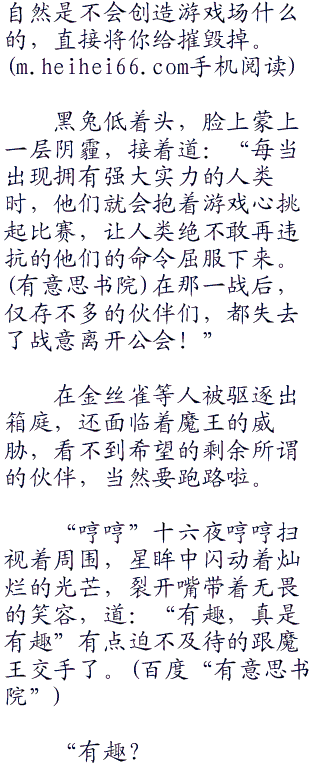 自然是不会创造游戏场什么
的，直接将你给摧毁掉。
(m.heihei66.com手机阅读)
黑兔低着头，脸上蒙上
一层阴霾，接着道：“每当
出现拥有强大实力的人类
时，他们就会抱着游戏心挑
起比赛，让人类绝不敢再违
抗的他们的命令屈服下来。
(有意思书院)在那一战后，
仅存不多的伙伴们，都失去
了战意离开公会！”
在金丝雀等人被驱逐出
箱庭，还面临着魔王的威
胁，看不到希望的剩余所谓
的伙伴，当然要跑路啦。
“哼哼”十六夜哼哼扫
视着周围，星眸中闪动着灿
烂的光芒，裂开嘴带着无畏
的笑容，道：“有趣，真是
有趣”有点迫不及待的跟魔
王交手了。(百度“有意思书
院”)
“有趣？